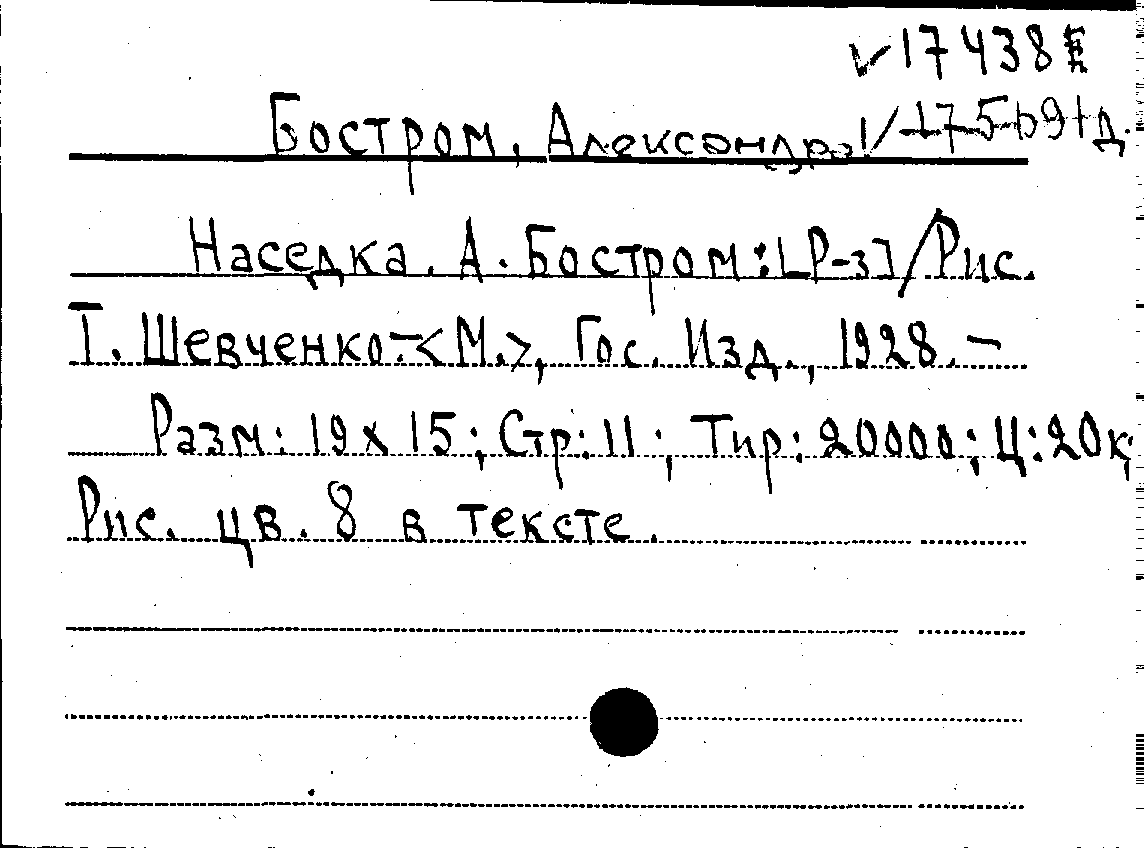 17438
Бостром, Александра
Наседка. А. Бостром: [Р-з] / Рис.
Т. Шевченко.-<М.>, Гос. Изд., 1928.-
Разм: 19 x 15; Стр: 11; Тир: 20000; Ц: 20к;
Рис. цв. 8 в тексте.